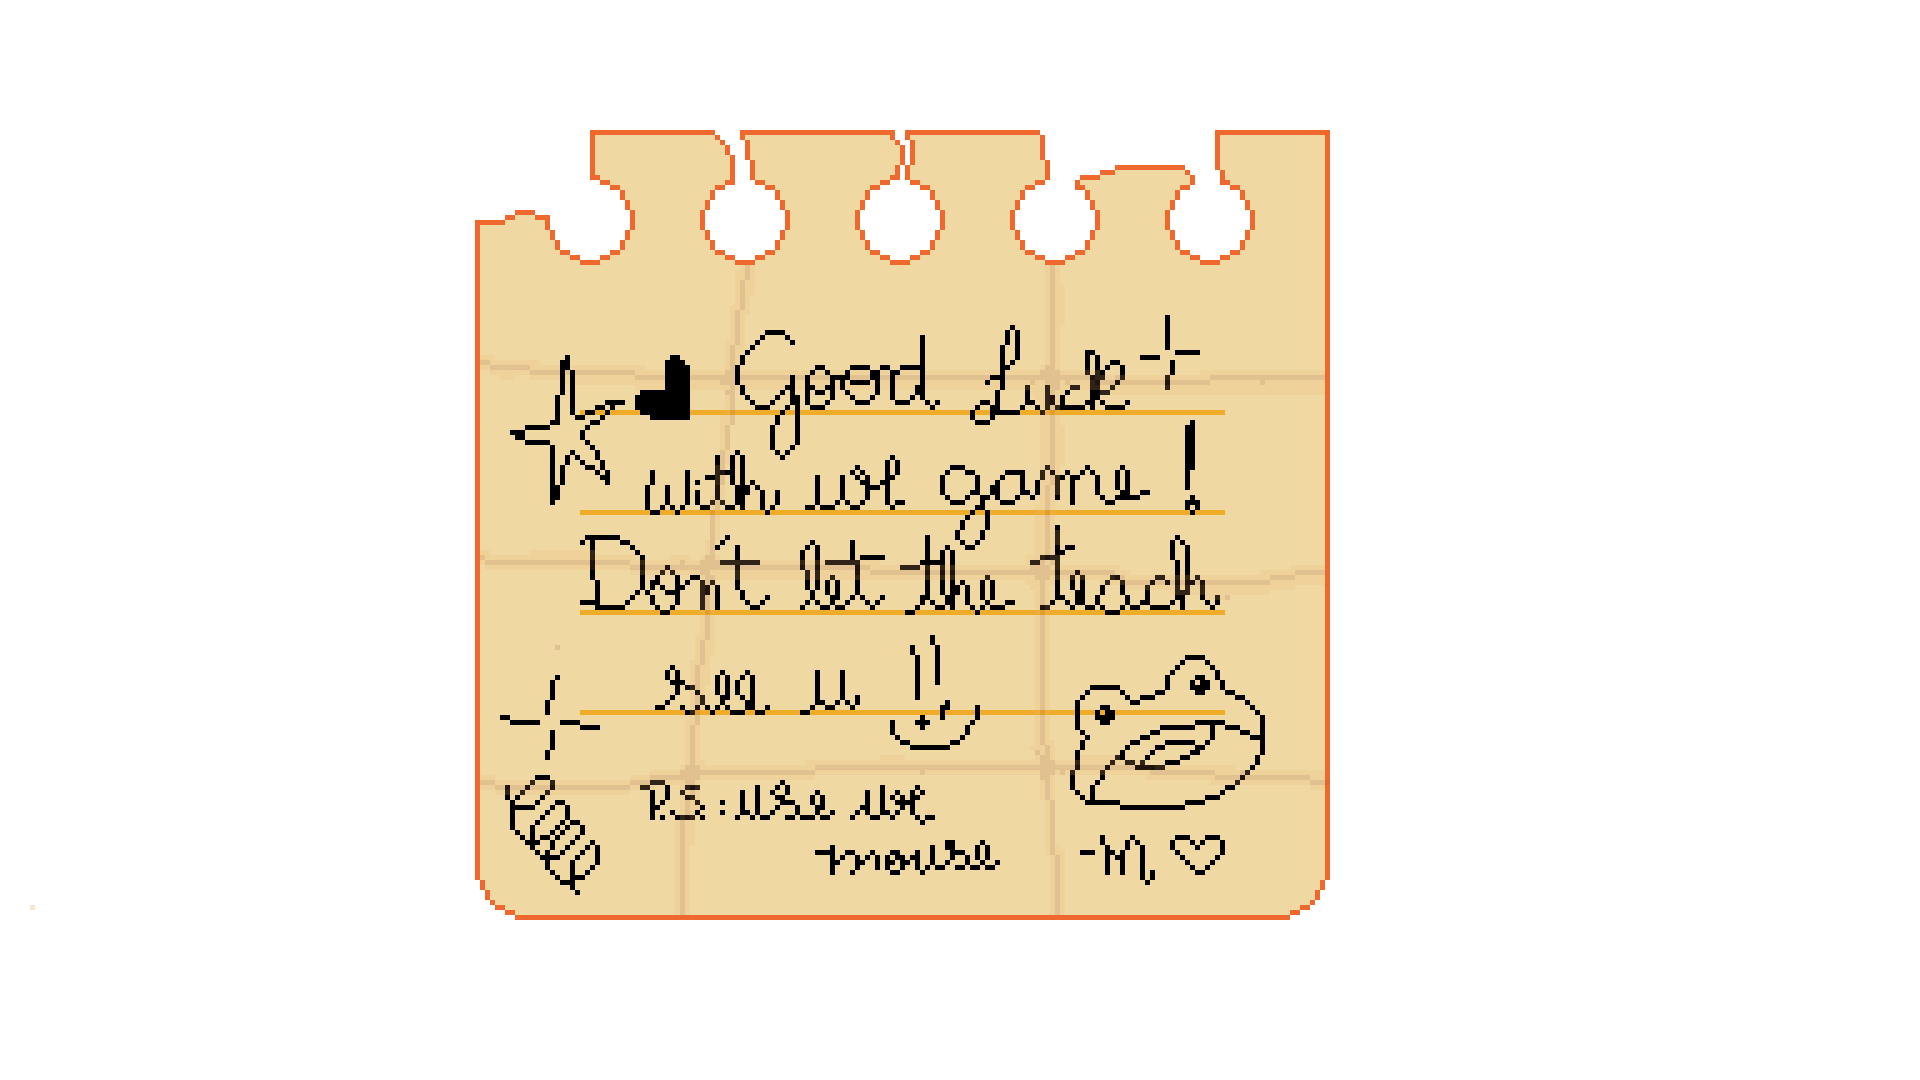 Good Luck
with ur game!
Don't let the teach
see u
P.S: use ur
mouse
-M